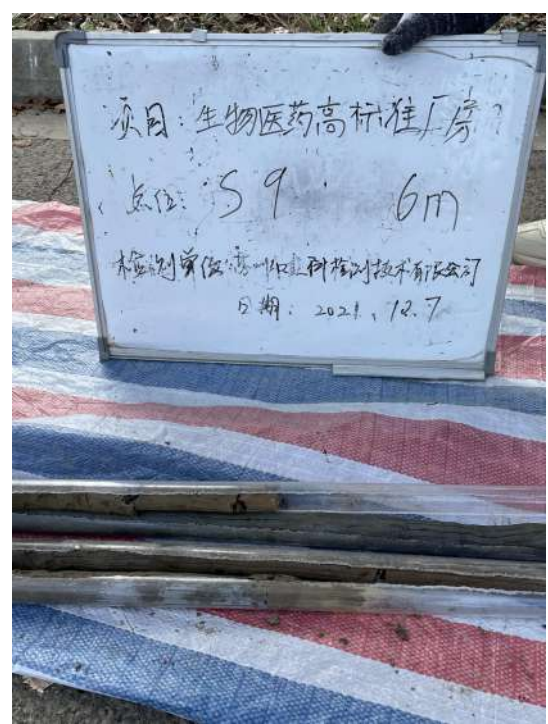 项目:生物医药高标准厂房
点位:S9 6m
检测单位:苏州 科检测技术有限公司
日期:2021.12.7